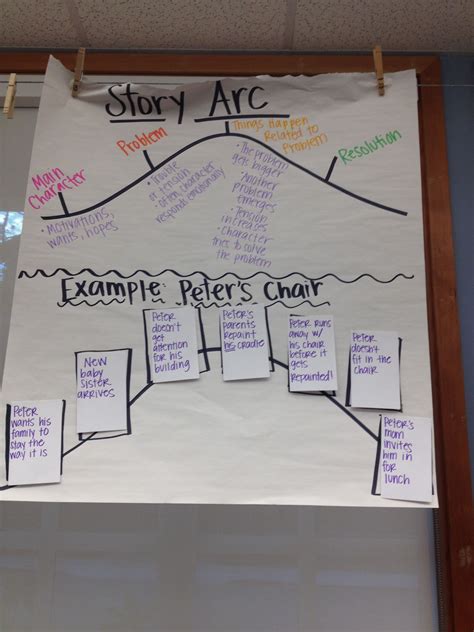 Story Arc
Main
Character
• Motivations,
wants, hopes
Problem
• Trouble
or tension
• Often character
responds emotionally
Things Happen
Related to
Problem
• The problem
gets bigger
• Another
problem
emerges
• Tension
increases
• Character
tries to solve
the problem
Resolution
Example: Peter's Chair
Peter
wants his
family to
stay the
way it is
New
baby
sister
arrives
Peter
doesn't
get
attention
for his
building
Peter's
parents
repaint
his cradle
Peter runs
away w/
his chair
before it
gets
repainted!
Peter
doesn't
fit in the
chair
Peter's
mom
invites
him in
for
lunch